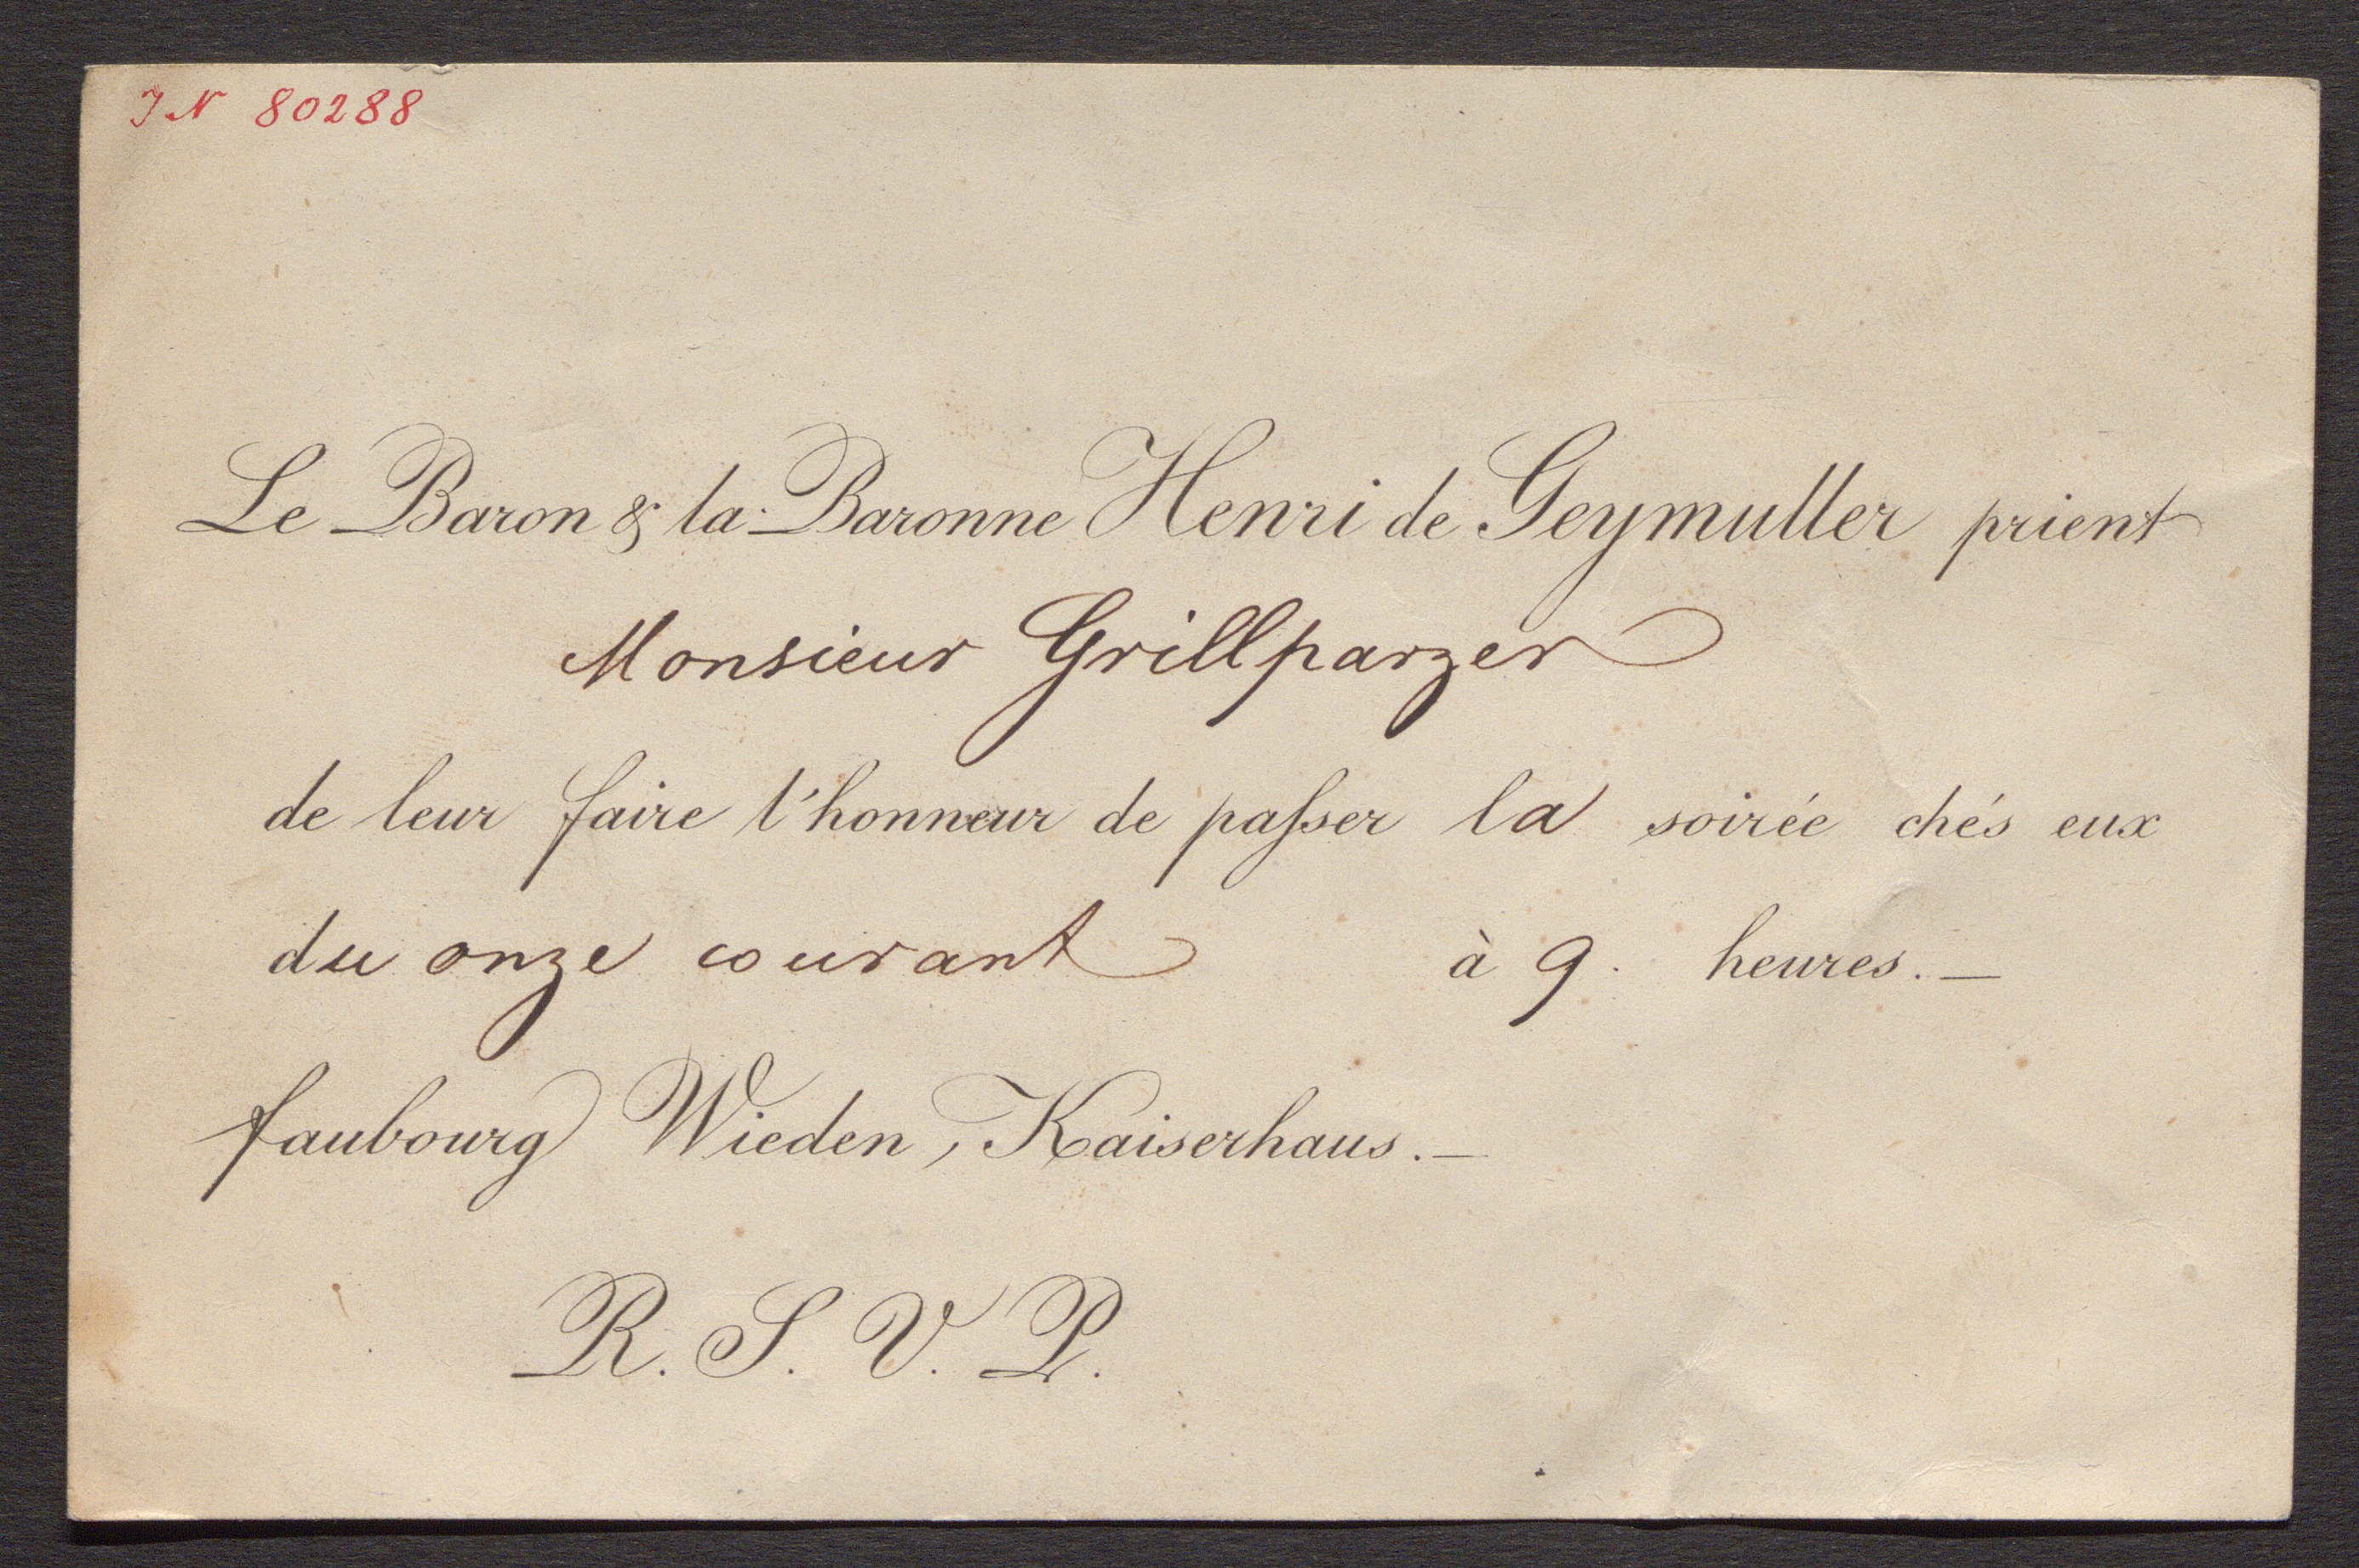 IN 80288
Le Baron & la Baronne Henri de Geymuller prient
Monsieur Grillparzer
de leur faire l'honneur de paſser la soirée chés eux
du onze courant à 9. heures.—
faubourg Wieden, Kaiserhaus.—
R. S. V. P.